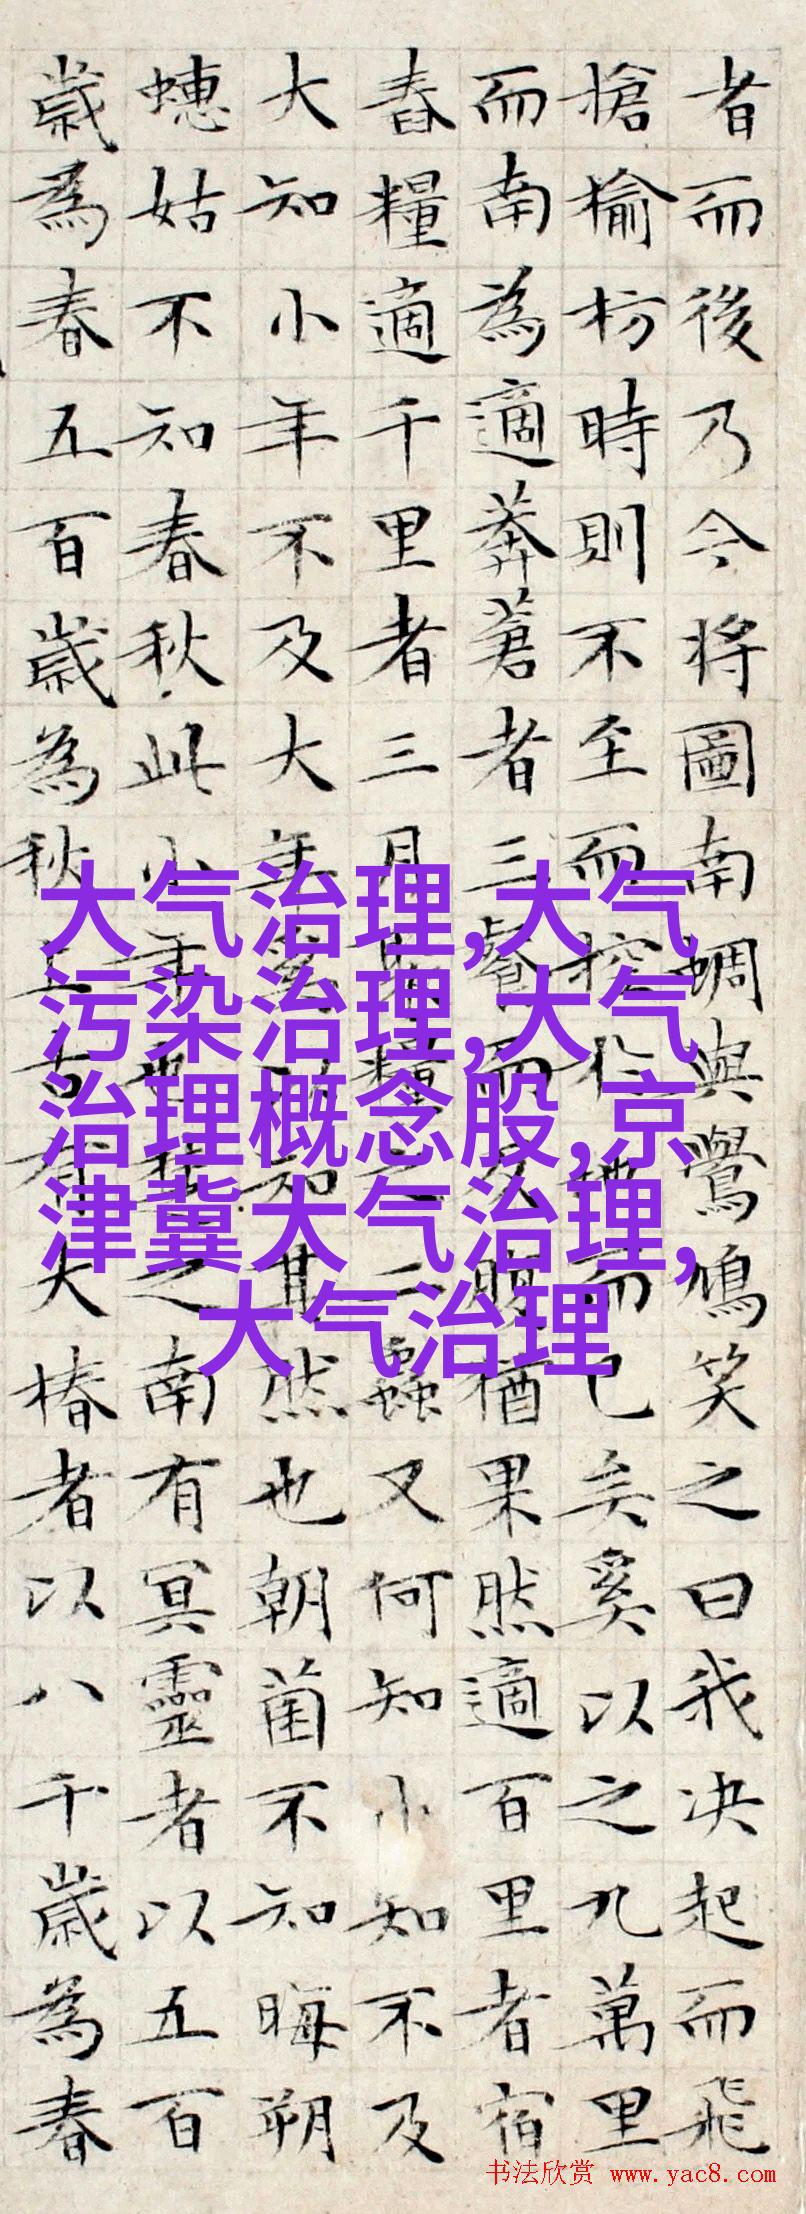 者而後乃今將圖南蜩與鷽鳩笑之曰我决起而飛
搶榆枋時則不至而控於地而已矣奚以之九萬里
而南為適莽蒼者三餐而反腹猶果然適百里者宿
舂糧適千里者三月聚糧之二蟲又何知小知不及
大知小年不及大年奚以知其然也朝菌不知晦朔
蟪姑不知春秋此小年也楚之南有冥靈者以五百
歲為春五百歲為秋上古有大椿者以八千歲為春
大气治理,大气
污染治理,大气
治理概念股,京
津冀大气治理,
大气治理
书法欣赏 www.yac8.com